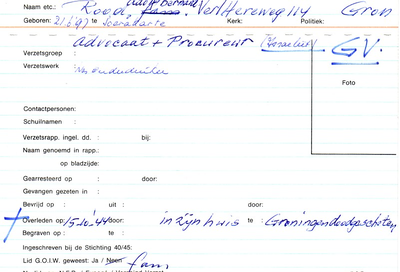 Naam etc.: Rood Adolf Bernard Verl Hereweg 114 Gron
Geboren: 21.6.97 te Soerakarta Kerk: Politiek:
Advocaat + Procureur (Israeliet) GV.
Verzetsgroep :
Verzetswerk :
Foto
Contactpersonen:
Schuilnamen :
Verzetsrapp. ingel. dd. : bij:
Naam genoemd in rapp.:
op bladzijde:
Gearresteerd op : door:
Gevangen gezeten in :
Bevrijd op : uit : door:
Overleden op: 15-10-'44 door: in zijn huis te : Groningen doodgeschoten
Begraven op : te :
Ingeschreven bij de Stichting 40/45:
Lid G.O.I.W. geweest: Ja / Neen fam.